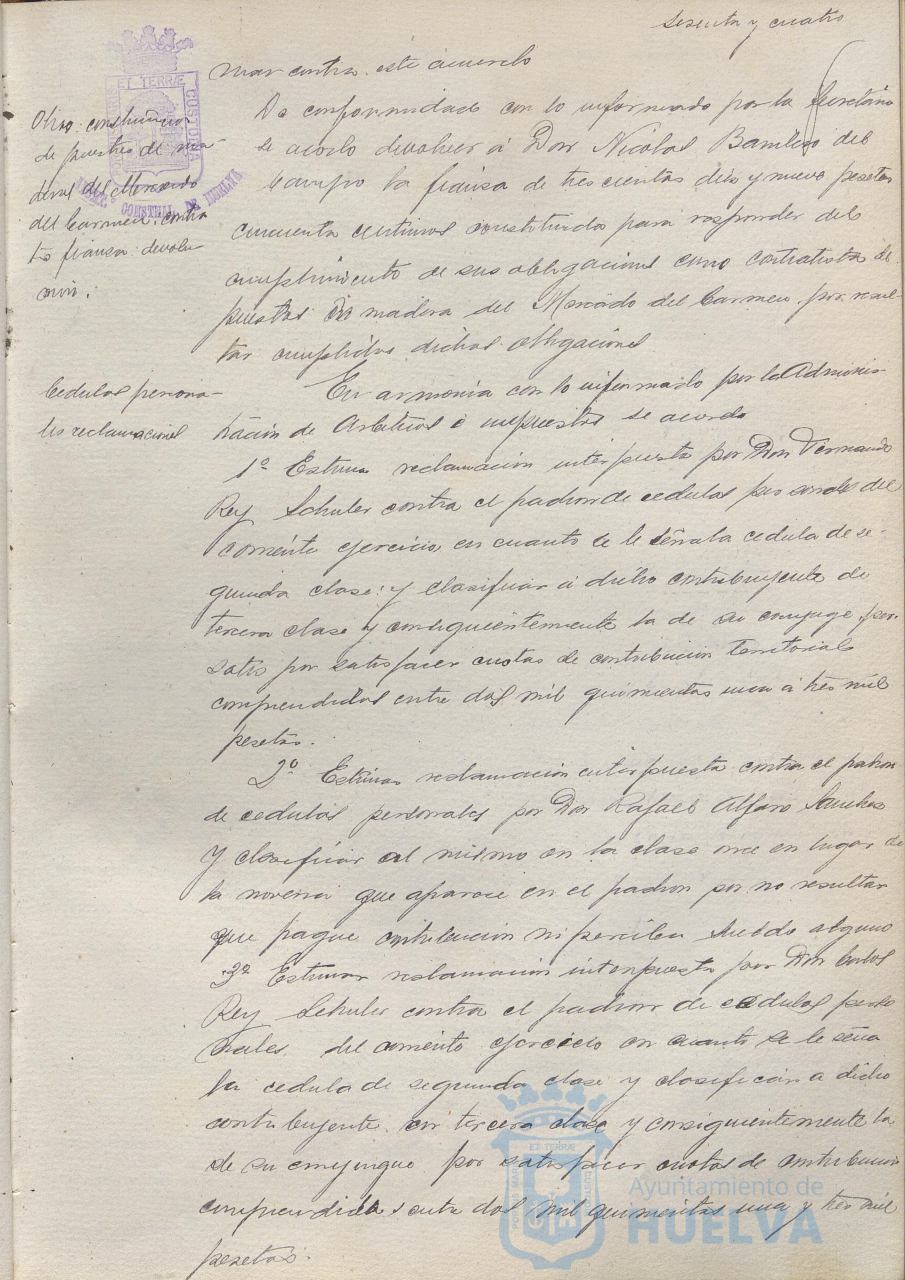 Sesenta y cuatro
mar contra este acuerdo
Obras: construcción
de puestos de ma-
dera del Mercado
del Carmen: contra
ta fianza: devolu-
ción.
De conformidad con lo informado por la Secretaria
se acordo devolver á Don Nicolas
del
Campo la fianza de trescientas diez y nueve pesetas
cincuenta centimos constituida para responder del
cumplimiento de sus obligaciones como contratista de
puestos de madera del Mercado del Carmen, por resul-
tar cumplidas dichas obligaciones
Cedulas persona-
les reclamaciones
En armonia con lo informado por la Adminis-
tración de Arbitrios é impuestos se acordo
1º Estimar reclamación interpuesta por Don Fernando
Rey Schuler contra el padron de cedulas personales del
corriente ejercicio en cuanto se le señala cedula de se-
gunda clase: y clasificar á dicho contribuyente de
tercera clase y consiguientemente la de su conyuge, por
satis por satisfacer cuotas de contribucion territorial
comprendidas entre dos mil quinientas una á tres mil
pesetas.
2º Estimar reclamación interpuesta contra el padron
de cedulas personales por Don Rafael Alfaro Sanchez
y clasificar al mismo en la clase once en lugar de
la novena que aparece en el padron por no resultar
que pague contribucion ni perciba sueldo alguno
3º Estimar reclamación interpuesta por Don Carlos
Rey Schuler contra el padron de cedulas perso
nales del corriente ejercicio en cuanto se le seña
la cedula de segunda clase y clasifican a dicho
contribuyente en tercera clase y consiguientemente la
de su conyugue por satisfacer cuotas de contribucion
comprendidas entre dos mil quinientas una y tres mil
pesetas.
ET TERRÆ
CUSTODIA
CONSTNAL. DE HUELVA
Ayuntamiento de
HUELVA